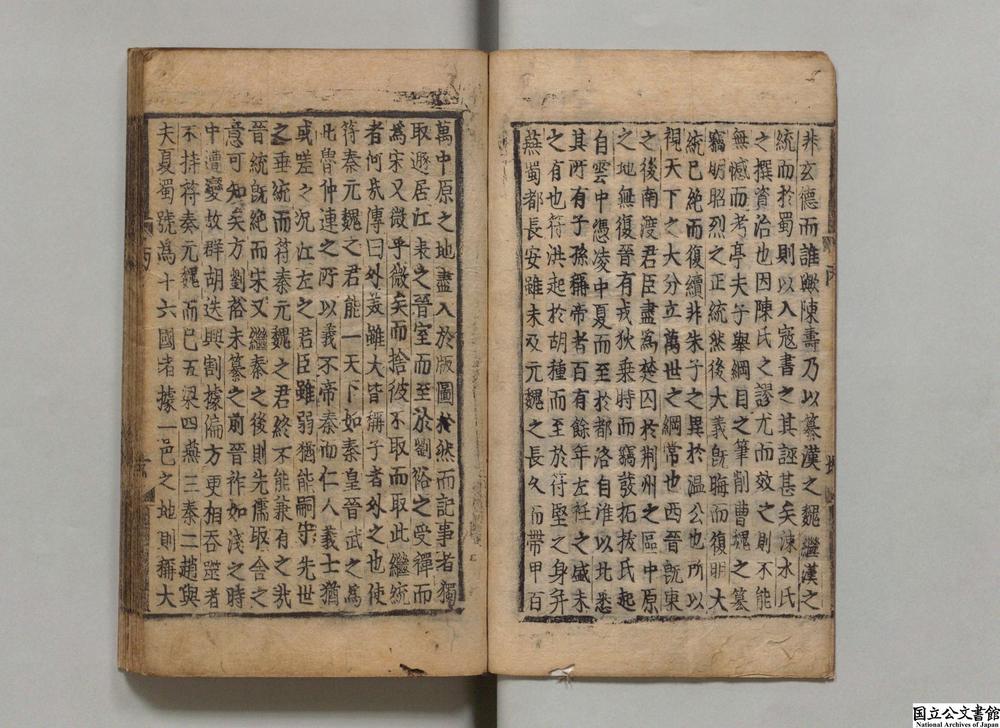 非玄德而誰歟陳壽乃以纂漢之魏繼漢之
統而於蜀則以入冦書之其誣甚矣涑水氏
之撰資治也因陳氏之謬尤而效之則不能
無憾而考亭夫子擧綱目之筆削曹魏之纂
竊明昭烈之正統然後大義旣晦而復明大
統已絶而復續非朱子之異於温公也所以
視天下之大分立萬世之綱常也西晉旣東
之後南渡君臣盡爲楚囚於荆州之區中原
之地無復晉有戎狄乗時而竊發拓拔氏起
自雲中憑凌中夏而至於都洛自淮以北悉
其所有子孫稱帝者百有餘年左衽之盛未
之有也符洪起於胡種而至於符堅之身弁
燕蜀都長安雖未及元魏之長久而帶甲百
萬中原之地盡入於版圖矣然而記事者獨
取遯居江表之晉室而至於劉裕之受禪而
爲宋又微乎微矣而捨彼不取而取此繼統
者何㢤傳曰外羙雖大皆稱子者外之也使
符秦元魏之君能一天下如秦皇晉武之爲
此魯仲連之所以義不帝秦而仁人義士猶
或嗟之况江左之君臣雖弱猶能嗣守先世
之垂統而符秦元魏之君終不能兼有之㢤
晉統旣絶而宋又繼秦之後則先儒取舎之
意可知矣方劉裕未纂之前晉祚如淺之時
中遭變故群胡迭興割據偏方更相呑噬者
不持符奏元魏而已五梁四燕三秦二趙與
夫夏蜀號爲十六國者據一邑之地則稱大
国立公文書館
National Archives of Japan